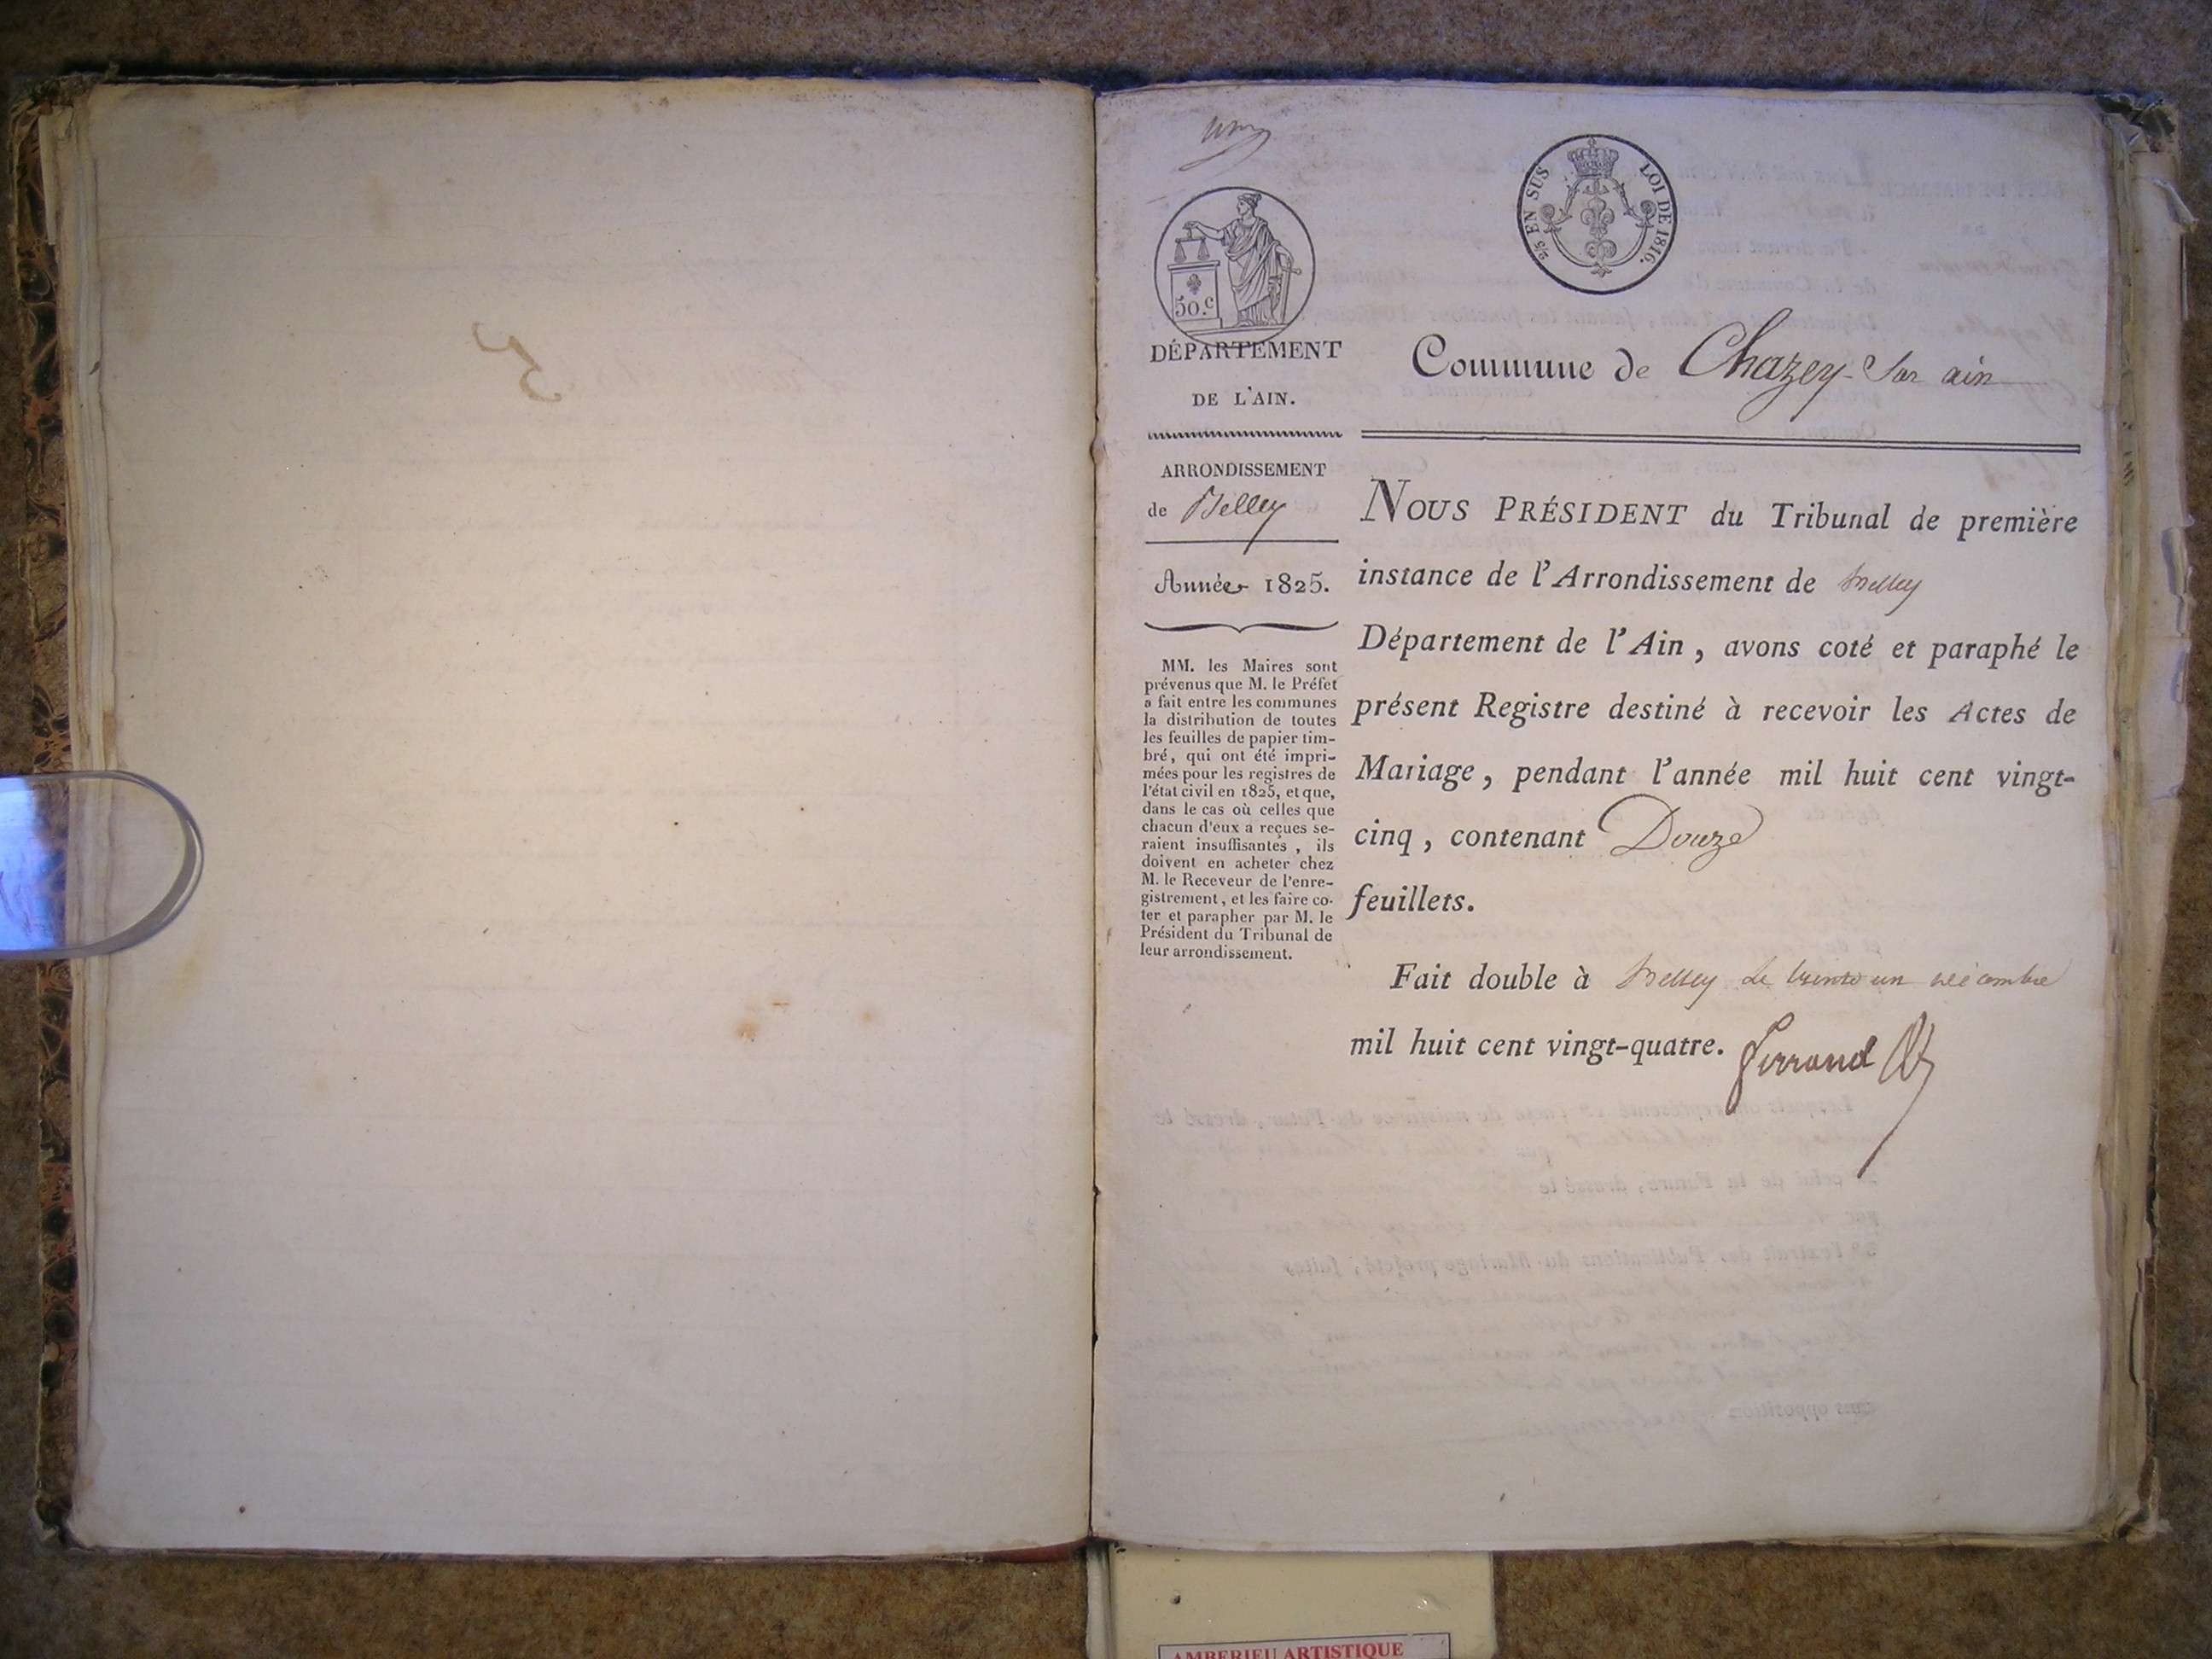 50.c
2/5 EN SUS LOI DE 1816.
DÉPARTEMENT
DE L'AIN.
Commune de Chazey-Sur ain
ARRONDISSEMENT
de Belley
Année 1825.
MM. les Maires sont
prévenus que M. le Préfet
a fait entre les communes
la distribution de toutes
les feuilles de papier tim-
bré, qui ont été impri-
mées pour les registres de
l'état civil en 1825, et que,
dans le cas où celles que
chacun d'eux a reçues se-
raient insuffisantes, ils
doivent en acheter chez
M. le Receveur de l'enre-
gistrement, et les faire co-
ter et parapher par M. le
Président du Tribunal de
leur arrondissement.
NOUS PRÉSIDENT du Tribunal de première
instance de l'Arrondissement de Belley
Département de l'Ain, avons coté et paraphé le
présent Registre destiné à recevoir les Actes de
Mariage, pendant l'année mil huit cent vingt-
cinq, contenant Douze
feuillets.
Fait double à Belley le trente un décembre
mil huit cent vingt-quatre. Ferrand
AMBERIEU ARTISTIQUE